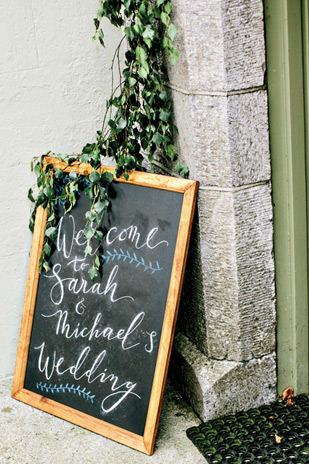 Welcome
to
Sarah
&
Michael's
Wedding